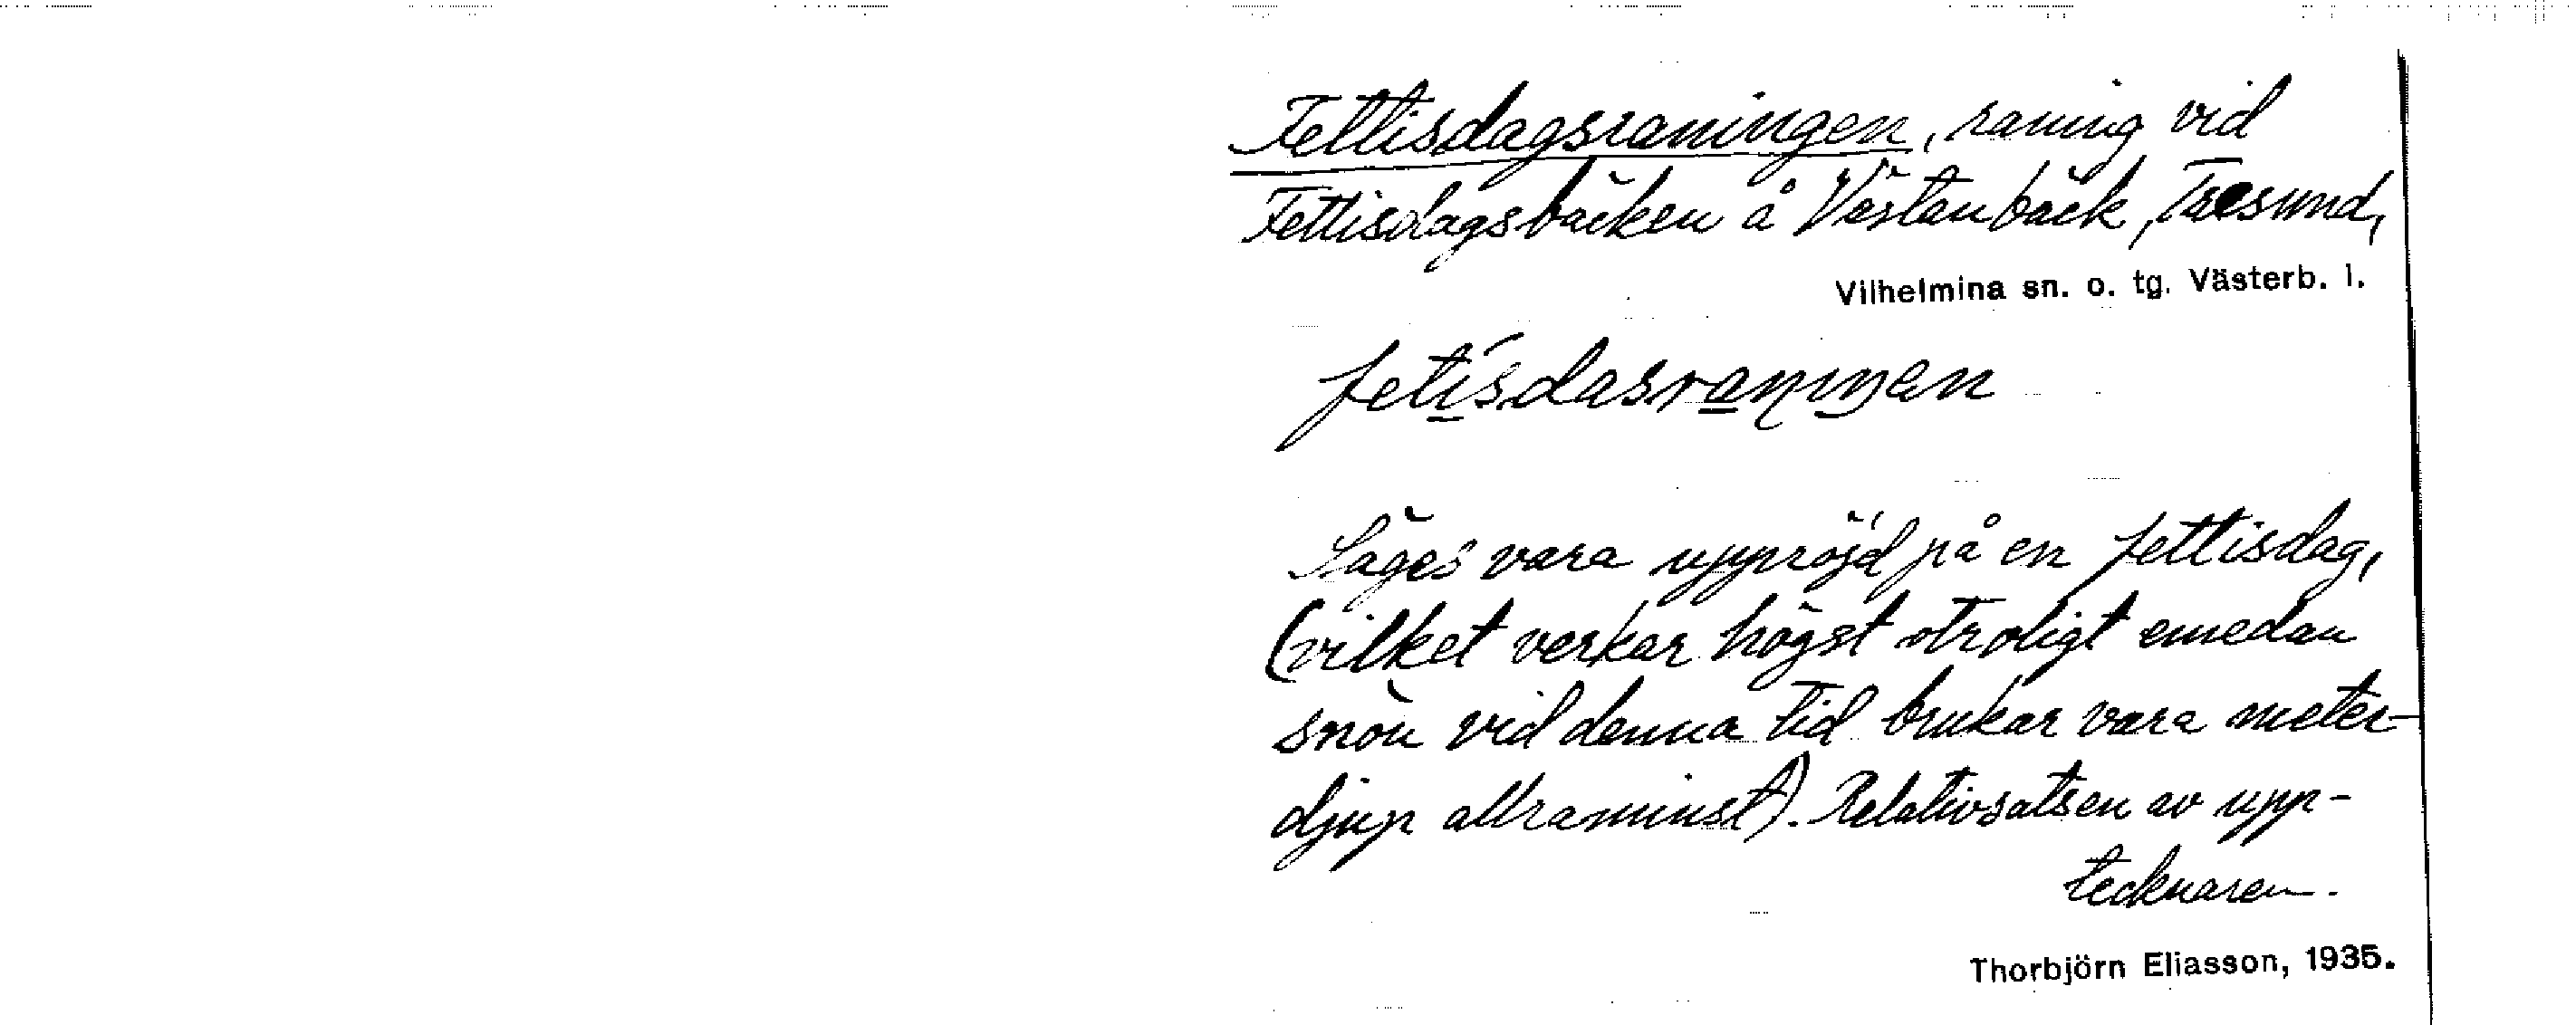 Fettisdagsraningen, raning vid
Fettisdagsbäcken å Västanbäck, Träsund,
Vilhelmina sn. o. tg. Västerb. l.
fetisdasraniŋen
Säges vara uppröjd på en fettisdag,
(vilket verkar högst otroligt emedan
snön vid denna tid brukar vara meter-
djup allraminst). Relativsatsen av upp-
tecknaren.
Thorbjörn Eliasson, 1935.